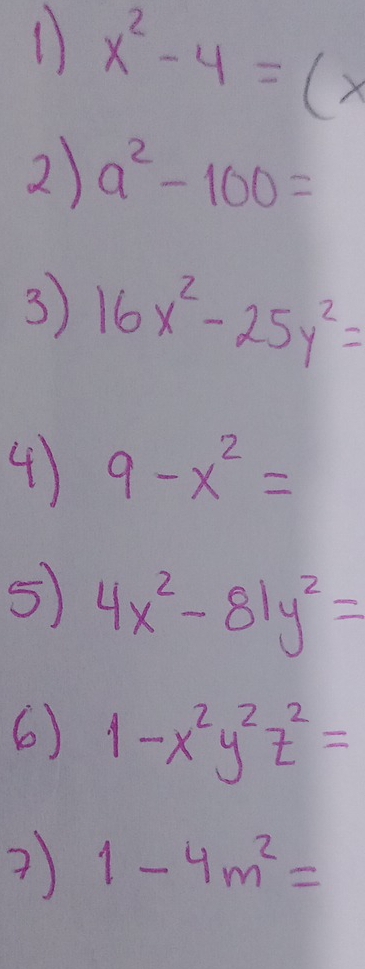 1) x² - 4 = (x
2) a² - 100 =
3) 16x² - 25y² =
4) 9 - x² =
5) 4x² - 81y² =
6) 1 - x²y²z² =
7) 1 - 4m² =